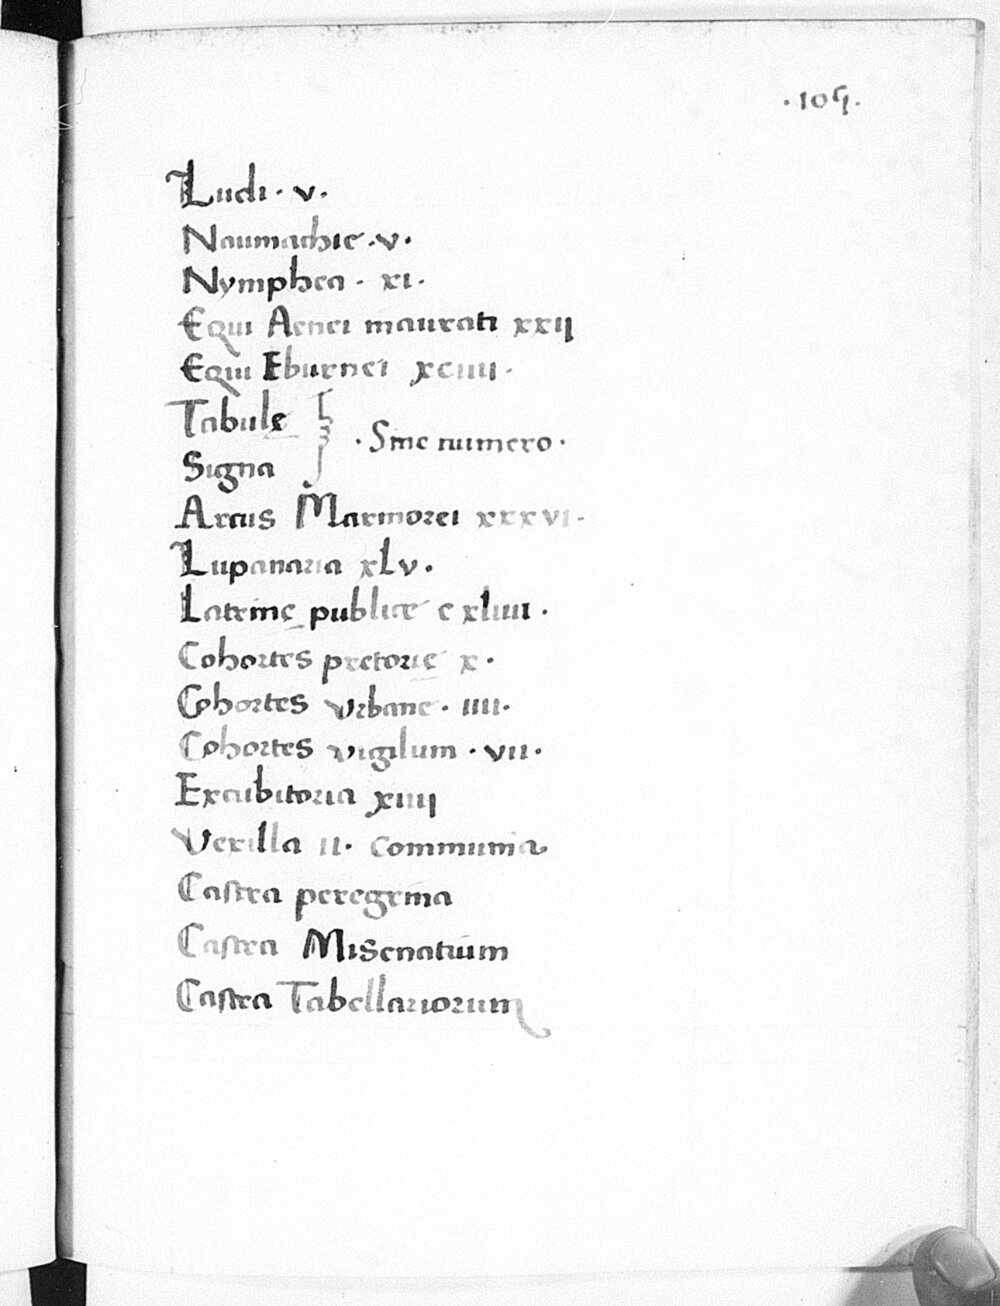 ·105·
Ludi· v·
Naumachie·v·
Nymphea· xi·
Equi Aenei maurati xxij
Equi Eburnei xciiii·
Tabule
·Sine numero·
Signa
Arcus Marmorei xxxvi·
Lupanaria xLv·
Latrine publice c xliiii·
Cohortes pretorie x·
Cohortes vrbane· iiii·
Cohortes vigilum· vii·
Excubitoria xiiij
Vexilla ii· communia
Castra peregrina
Castra Misenatium
Castra Tabellariorum